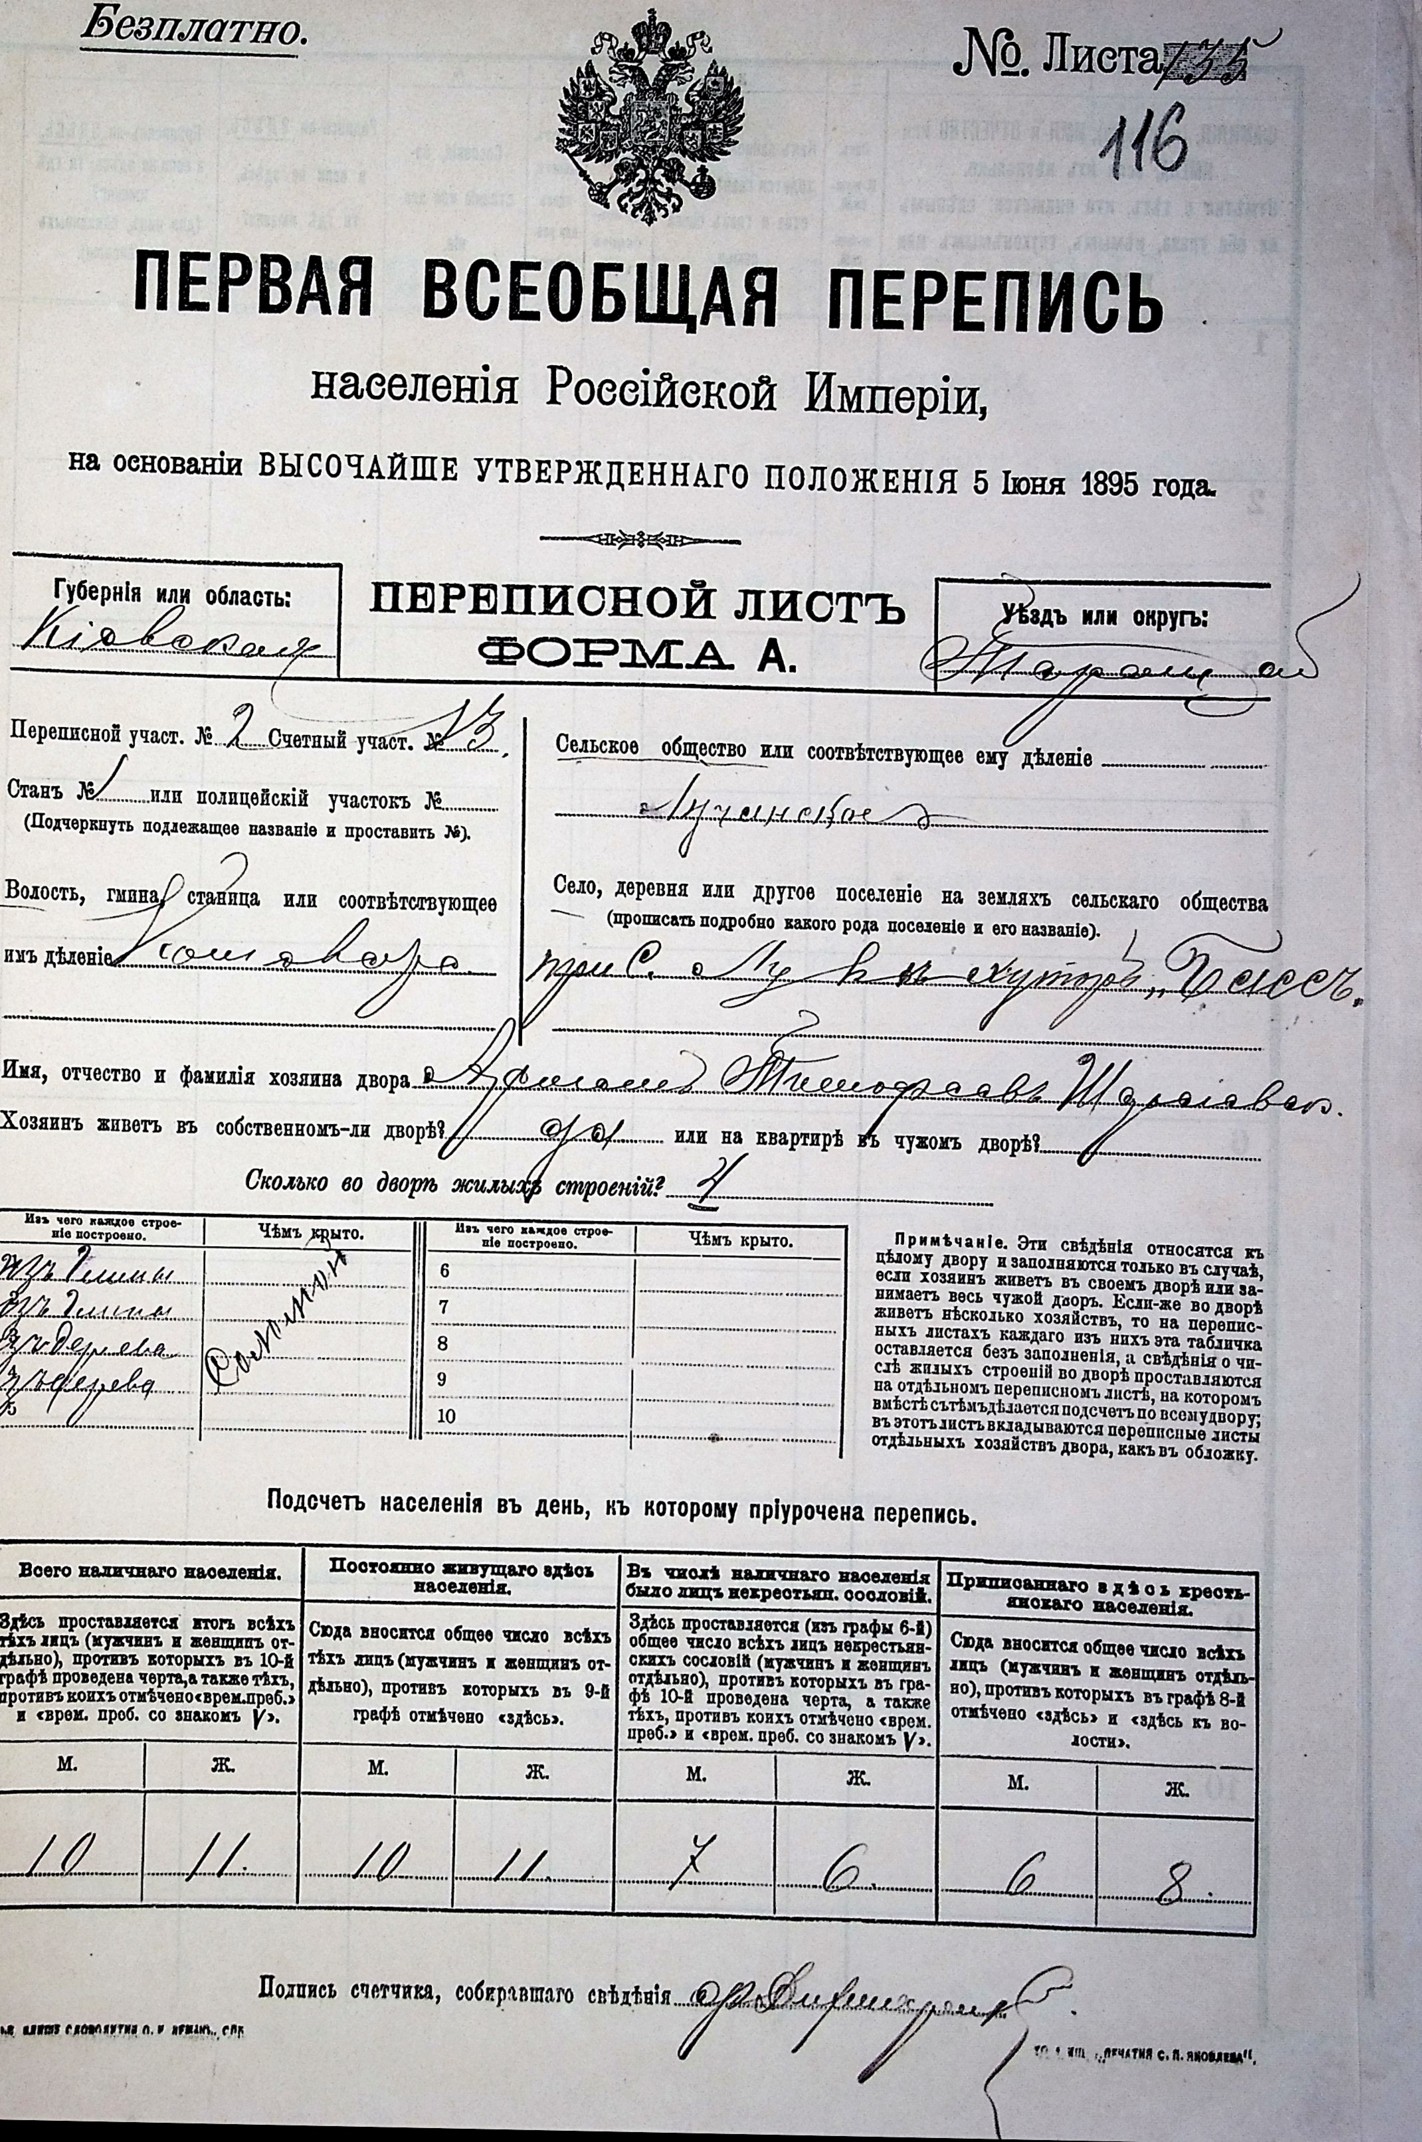 Безплатно.
№. Листа 135
116
ПЕРВАЯ ВСЕОБЩАЯ ПЕРЕПИСЬ
населенія Россійской Имперіи,
на основаніи ВЫСОЧАЙШЕ УТВЕРЖДЕННАГО ПОЛОЖЕНІЯ 5 Іюня 1895 года.
Губернія или область:
Кіевская
ПЕРЕПИСНОЙ ЛИСТЪ
ФОРМА А.
Уѣздъ или округъ:
Таращан
Переписной участ. № 2 Счетный участ. № 13.
Станъ № 1 или полицейскій участокъ №
(Подчеркнуть подлежащее названіе и проставить №).
Волость, гмина, станица или соотвѣтствующее
имъ дѣленіе Кошовата
Сельское общество или соотвѣтствующее ему дѣленіе
Лучанское
Село, деревня или другое поселеніе на земляхъ сельскаго общества
(прописать подробно какого рода поселеніе и его названіе).
при С. хуторъ
Имя, отчество и фамилія хозяина двора Тимофеевъ
Хозяинъ живетъ въ собственномъ-ли дворѣ? да или на квартирѣ въ чужомъ дворѣ?
Сколько во дворѣ жилыхъ строеній? 4
Изъ чего каждое строе-
ніе построено.
Чѣмъ крыто.
Изъ чего каждое строе-
ніе построено.
Чѣмъ крыто.
изъ Глины
изъ Глины
изъ дерева
изъ дерева
5
Соломой
6
7
8
9
10
Примѣчаніе. Эти свѣдѣнія относятся къ
цѣлому двору и заполняются только въ случаѣ,
если хозяинъ живетъ въ своемъ дворѣ или за-
нимаетъ весь чужой дворъ. Если-же во дворѣ
живетъ нѣсколько хозяйствъ, то на перепис-
ныхъ листахъ каждаго изъ нихъ эта табличка
оставляется безъ заполненія, а свѣдѣнія о чи-
слѣ жилыхъ строеній во дворѣ проставляются
на отдѣльномъ переписномъ листѣ, на которомъ
вмѣстѣ съ тѣмъ дѣлается подсчетъ по всему двору;
въ этотъ листъ вкладываются переписные листы
отдѣльныхъ хозяйствъ двора, какъ въ обложку.
Подсчетъ населенія въ день, къ которому пріурочена перепись.
Всего наличнаго населенія.
Здѣсь проставляется итогъ всѣхъ
тѣхъ лицъ (мужчинъ и женщинъ от-
дѣльно), противъ которыхъ въ 10-й
графѣ проведена черта, а также тѣхъ,
противъ коихъ отмѣчено «врем. преб.»
и «врем. преб. со знакомъ V».
М. Ж.
10 11.
Постоянно живущаго здѣсь
населенія.
Сюда вносится общее число всѣхъ
тѣхъ лицъ (мужчинъ и женщинъ от-
дѣльно), противъ которыхъ въ 9-й
графѣ отмѣчено «здѣсь».
М. Ж.
10 11.
Въ числѣ наличнаго населенія
было лицъ некрестьян. сословій.
Здѣсь проставляется (изъ графы 6-й)
общее число всѣхъ лицъ некрестьян-
скихъ сословій (мужчинъ и женщинъ
отдѣльно), противъ которыхъ въ гра-
фѣ 10-й проведена черта, а также
тѣхъ, противъ коихъ отмѣчено «врем.
преб.» и «врем. преб. со знакомъ V».
М. Ж.
7 6.
Приписаннаго здѣсь кресть-
янскаго населенія.
Сюда вносится общее число всѣхъ
лицъ (мужчинъ и женщинъ отдѣль-
но), противъ которыхъ въ графѣ 8-й
отмѣчено «здѣсь» и «здѣсь къ во-
лости».
М. Ж.
6 8.
Подпись счетчика, собиравшаго свѣдѣнія